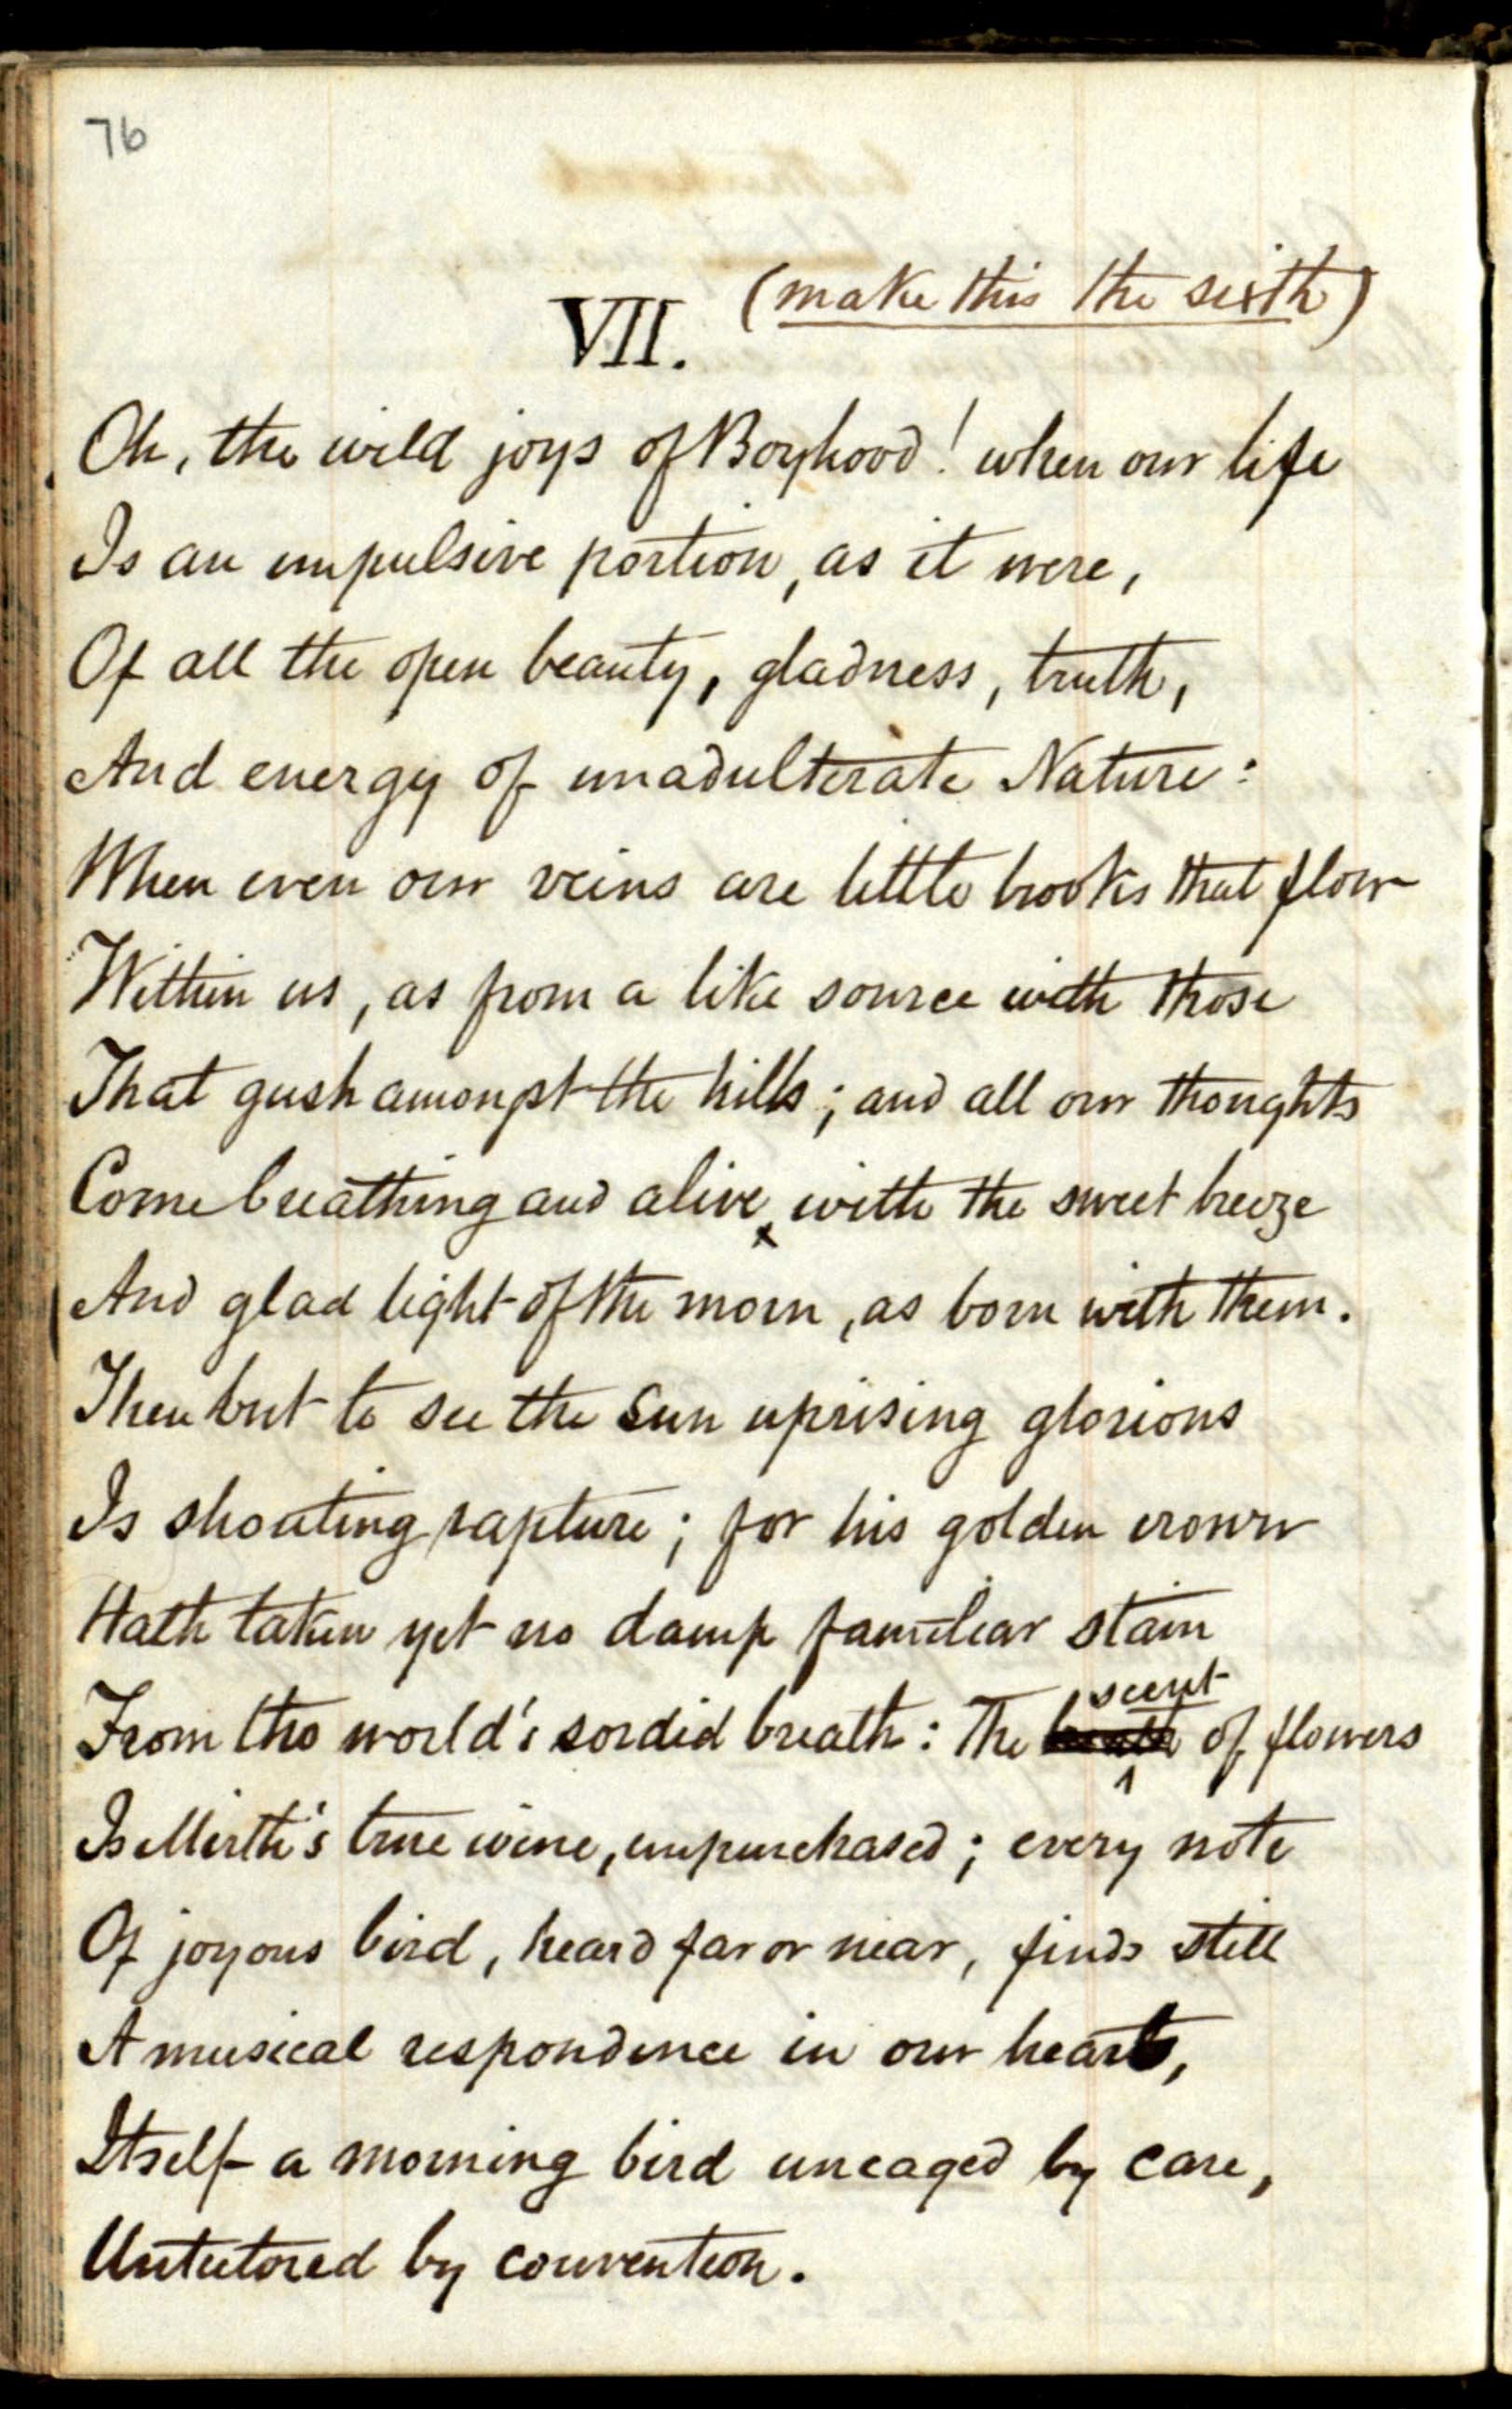 76
VII. (make this the sixth)
Oh, the wild joys of Boyhood! when our life
Is an impulsive portion, as it were,
Of all the open beauty, gladness, truth,
And energy of unadulterate Nature:
When even our veins are little brooks that flow
Within us, as from a like source with those
That gush amongst the hills; and all our thoughts
Come breathing and alive, with the sweet breeze
And glad light of the morn, as born with them.
Then but to see the Sun uprising glorious
Is shouting rapture; for his golden crown
Hath taken yet no damp familiar stain
scent
From the world's sordid breath: The breath of flowers
Is Mirth's true wine, unpurchased; every note
Of joyous bird, heard far or near, finds still
A musical respondence in our heart,
Itself a morning bird uncaged by care,
Untutored by convention.